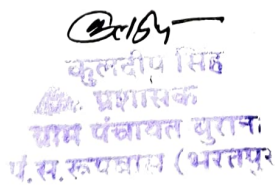 कुलदीप सिंह
प्रशासक
ग्राम पंचायत
पं.स.रूपवास (भरतपुर